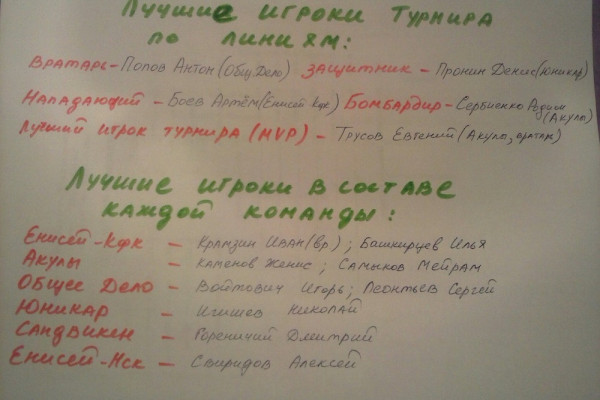 Лучшие игроки турнира
по линиям:
Вратарь - Попов Антон (Общ. Дело) Защитник - Пронин Денис (Юникар)
Нападающий - Боев Артём (Енисей Кфк) Бомбардир - Сербиенко
(Акулы)
Лучший игрок турнира (MVP) - Трусов Евгений (Акулы, вратарь)
Лучшие игроки в составе
каждой команды:
Енисей-Кфк - Крамзин Иван (вр.); Башкирцев Илья
Акулы - Каменов Женис; Самыков Мейрам
Общее Дело - Войтович Игорь; Леонтьев Сергей
Юникар - Игишев Николай
Сандвикен - Гореничий Дмитрий
Енисей-Нск - Свиридов Алексей